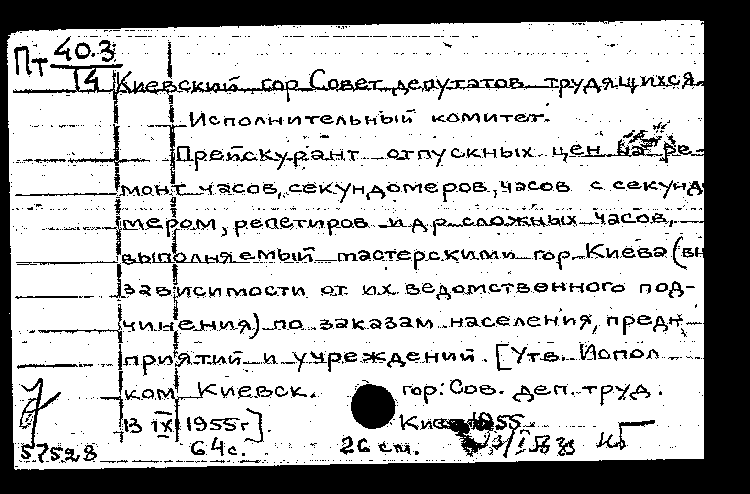 Пт 40.3
14
Киевский гор Совет депутатов трудящихся.
Исполнительный комитет.
Прейскурант отпускных цен на ре-
монт часов, секундомеров, часов с секунд
мером, репетиров и др. сложных часов,
выполняемый мастерскими гор. Киева (вн
зависимости от их ведомственного под-
чинения) по заказам населения, предп
приятий и учреждений. [Утв. Испол
ком Киевск. гор. Сов. деп. труд.
13 IX 1955 г]. Киев 1955
57528 64 с. 26 см.